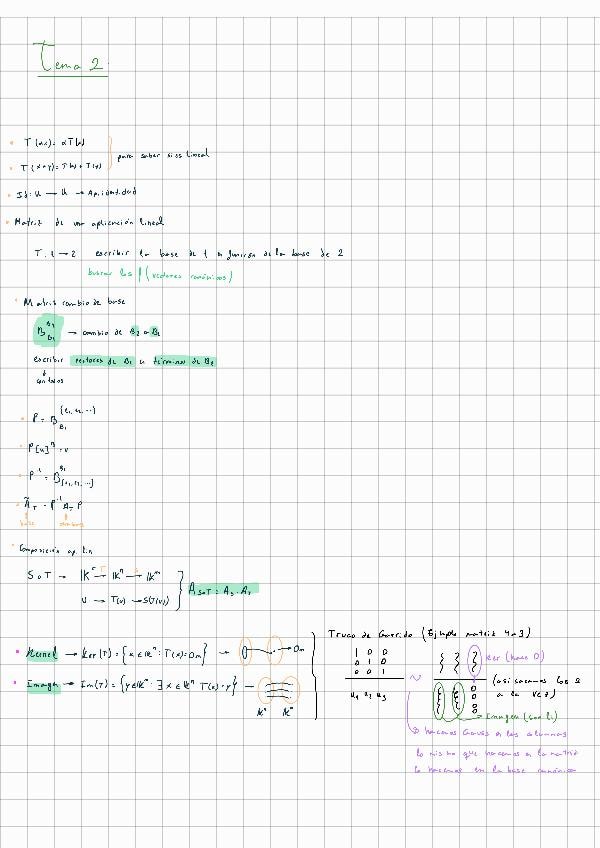 Tema 2.
T(αx)= αT(x)
para saber si es lineal
T(x+y)=T(x)+T(y)
Id: U → U → Ap. identidad
Matriz de una aplicación lineal
T: 1 → 2 escribir la base de 1 en función de la base de 2
buscar los f(vectores canónicos)
Matriz cambio de base
→ cambio de
escribir vectores de B₁ en términos de B₂
P[u]ᴮ = u
Ã_T = P⁻¹ A_T P
Composición ap. lin
S∘T → 𝕂ʳ → 𝕂ⁿ → 𝕂ᵐ
u → T(u) → S(T(u))
A_S∘T = A_S · A_T
Kernel → Ker(T) = {x ∈ 𝕂ⁿ : T(x) = 0m} → 0m
Imagen → Im(T) = {y ∈ 𝕂ᵐ : ∃ x ∈ 𝕂ⁿ T(x) = y} →
𝕂ⁿ 𝕂ᵐ
Truco de Garrido (Ejemplo matriz 4×3)
1 0 0
0 1 0
0 0 1
u₁ u₂ u₃
Ker (hace 0)
(así sacamos los 2
a la vez)
0
0
0
0
Imagen (son li)
hacemos Gauss a las columnas
lo mismo que hacemos a la matriz
lo hacemos en la base canónica